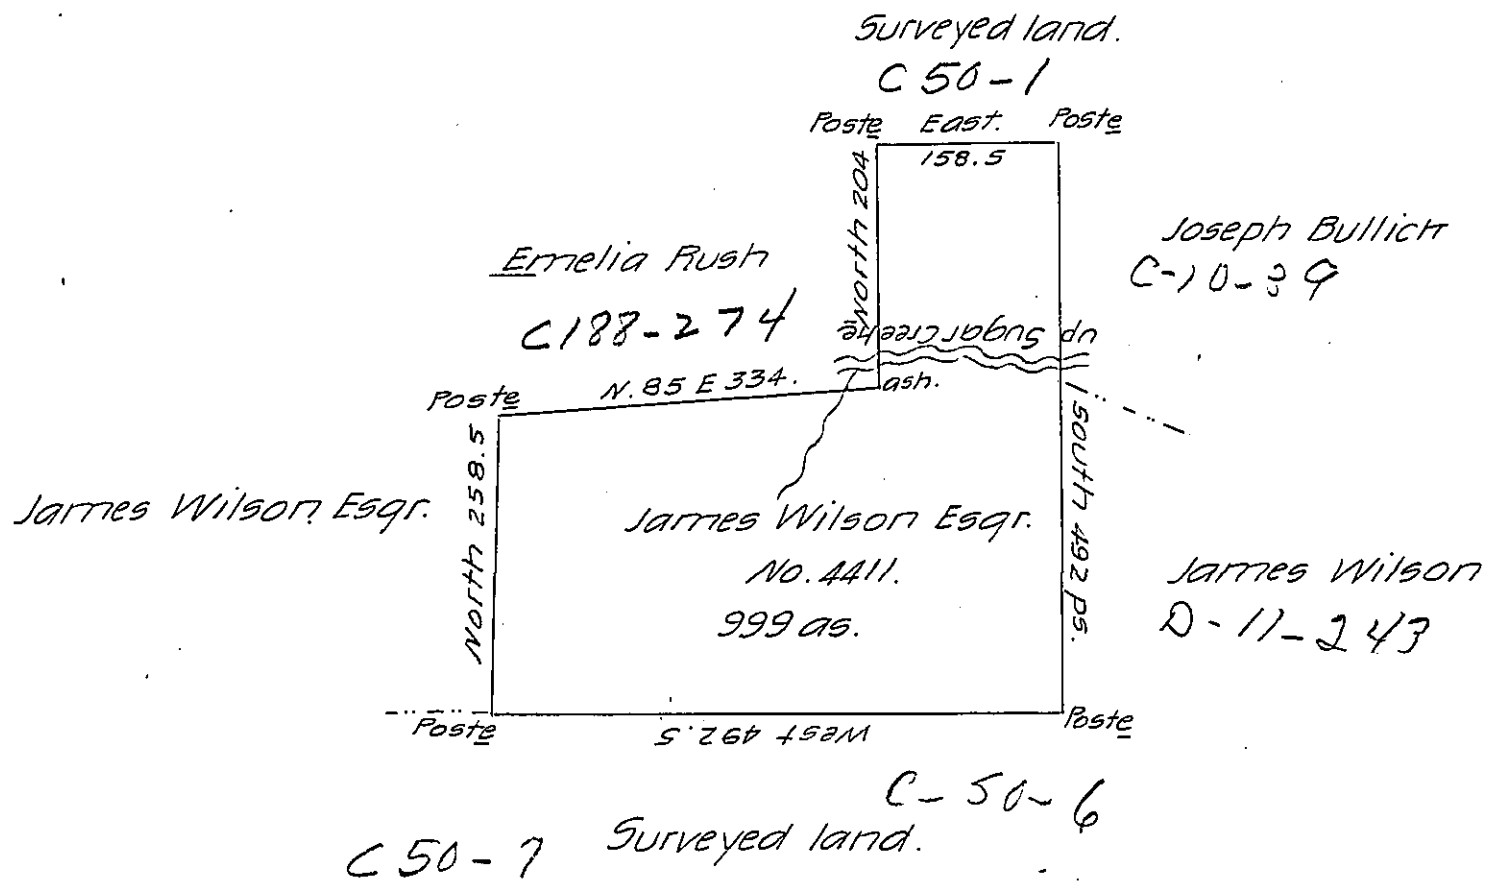 Surveyed land.
C 50-1
Poste East. Poste
158.5
North 204
Joseph Bullich
C-10-39
Emelia Rush
C188-274
up Sugarcreeke
N. 85 E 334.
ash.
Poste
North 258.5
South 492 ps.
James Wilson Esqr.
James Wilson Esqr.
No. 4411.
999 as.
James Wilson
D-11-243
Poste
West 492.5
Poste
C-50-6
Surveyed land.
C 50-7